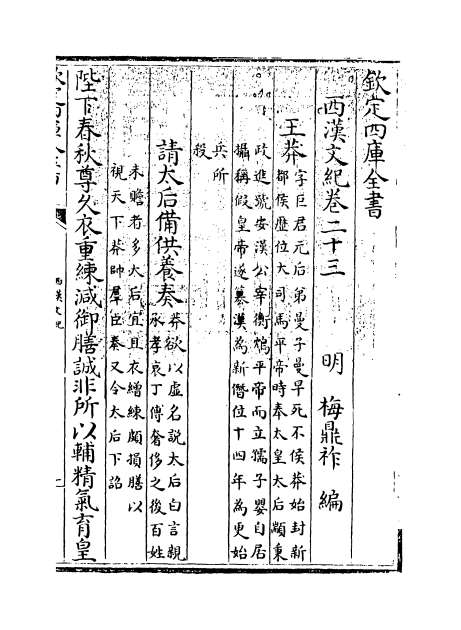 欽定四庫全書
西漢文紀卷二十三
明 梅鼎祚 編
王莽 字巨君元后弟曼子曼早死不侯莽始封新
都侯歷位大司馬平帝時奉太皇太后顓秉
政進號安漢公宰衡鴆平帝而立孺子嬰自居
攝稱假皇帝遂篡漢為新僭位十四年為更始
兵所
殺
請太后備供養奏 莽欲以虛名說太后白言親
承孝哀丁傅奢侈之後百姓
未贍者多太后宜且衣繒練頗損膳以
視天下莽帥羣臣奏又令太后下詔
陛下春秋尊久衣重練減御膳誠非所以輔精氣育皇
西漢文紀
一